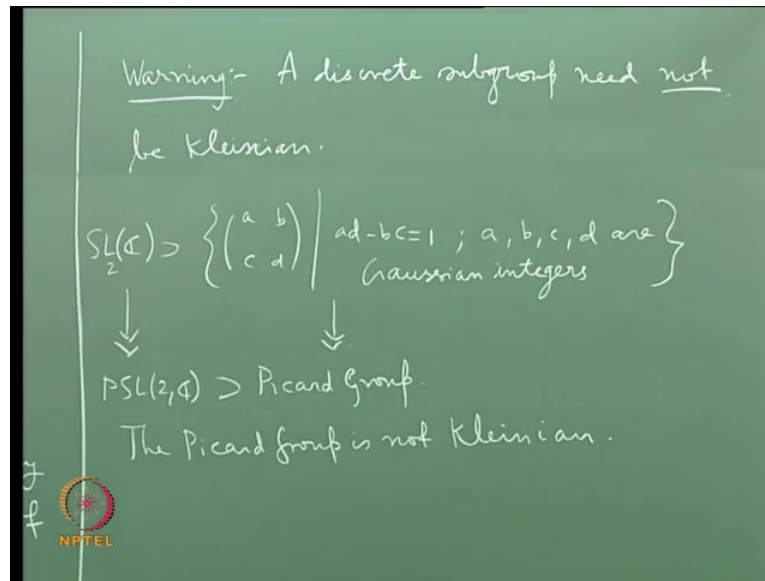 Warning:- A discrete subgroup need not
be Kleinian.
SL₂(ℂ) > { ( a b | ad-bc=1 ; a, b, c, d are }
c d ) Gaussian integers
PSL(2,ℂ) > Picard Group.
The Picard Group is not Kleinian.
y
f
NPTEL